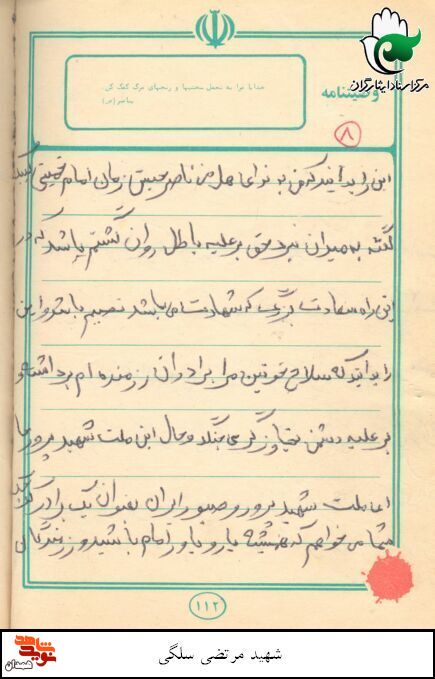 مرکز اسناد ایثارگران
وصیتنامه
خدایا مرا به تحمل سختیها و رنجهای مرگ کمک کن.
پیامبر (ص)
۸
این را بدانید که من به نوای هل من ناصر حسین زمان امام خمینی لبیک
گفته به میدان نبرد حق بر علیه باطل روان گشتم باشد که در
این راه سعادت بزرگ که شهادت می باشد نصیبم باشد و این
را بدانید که سلاح خونین مرا برادران رزمنده ام برداشته و
بر علیه دشمن تجاوزگر می جنگند و حال این ملت شهید پرور ما
اما ملت شهید پرور و صبور ایران بعنوان یک برادر کوچک
شما می خواهم که همیشه یار و یاور امام باشید و رزمندگان
۱۱۲
شاهد
نوید
همدان
شهید مرتضی سلگی